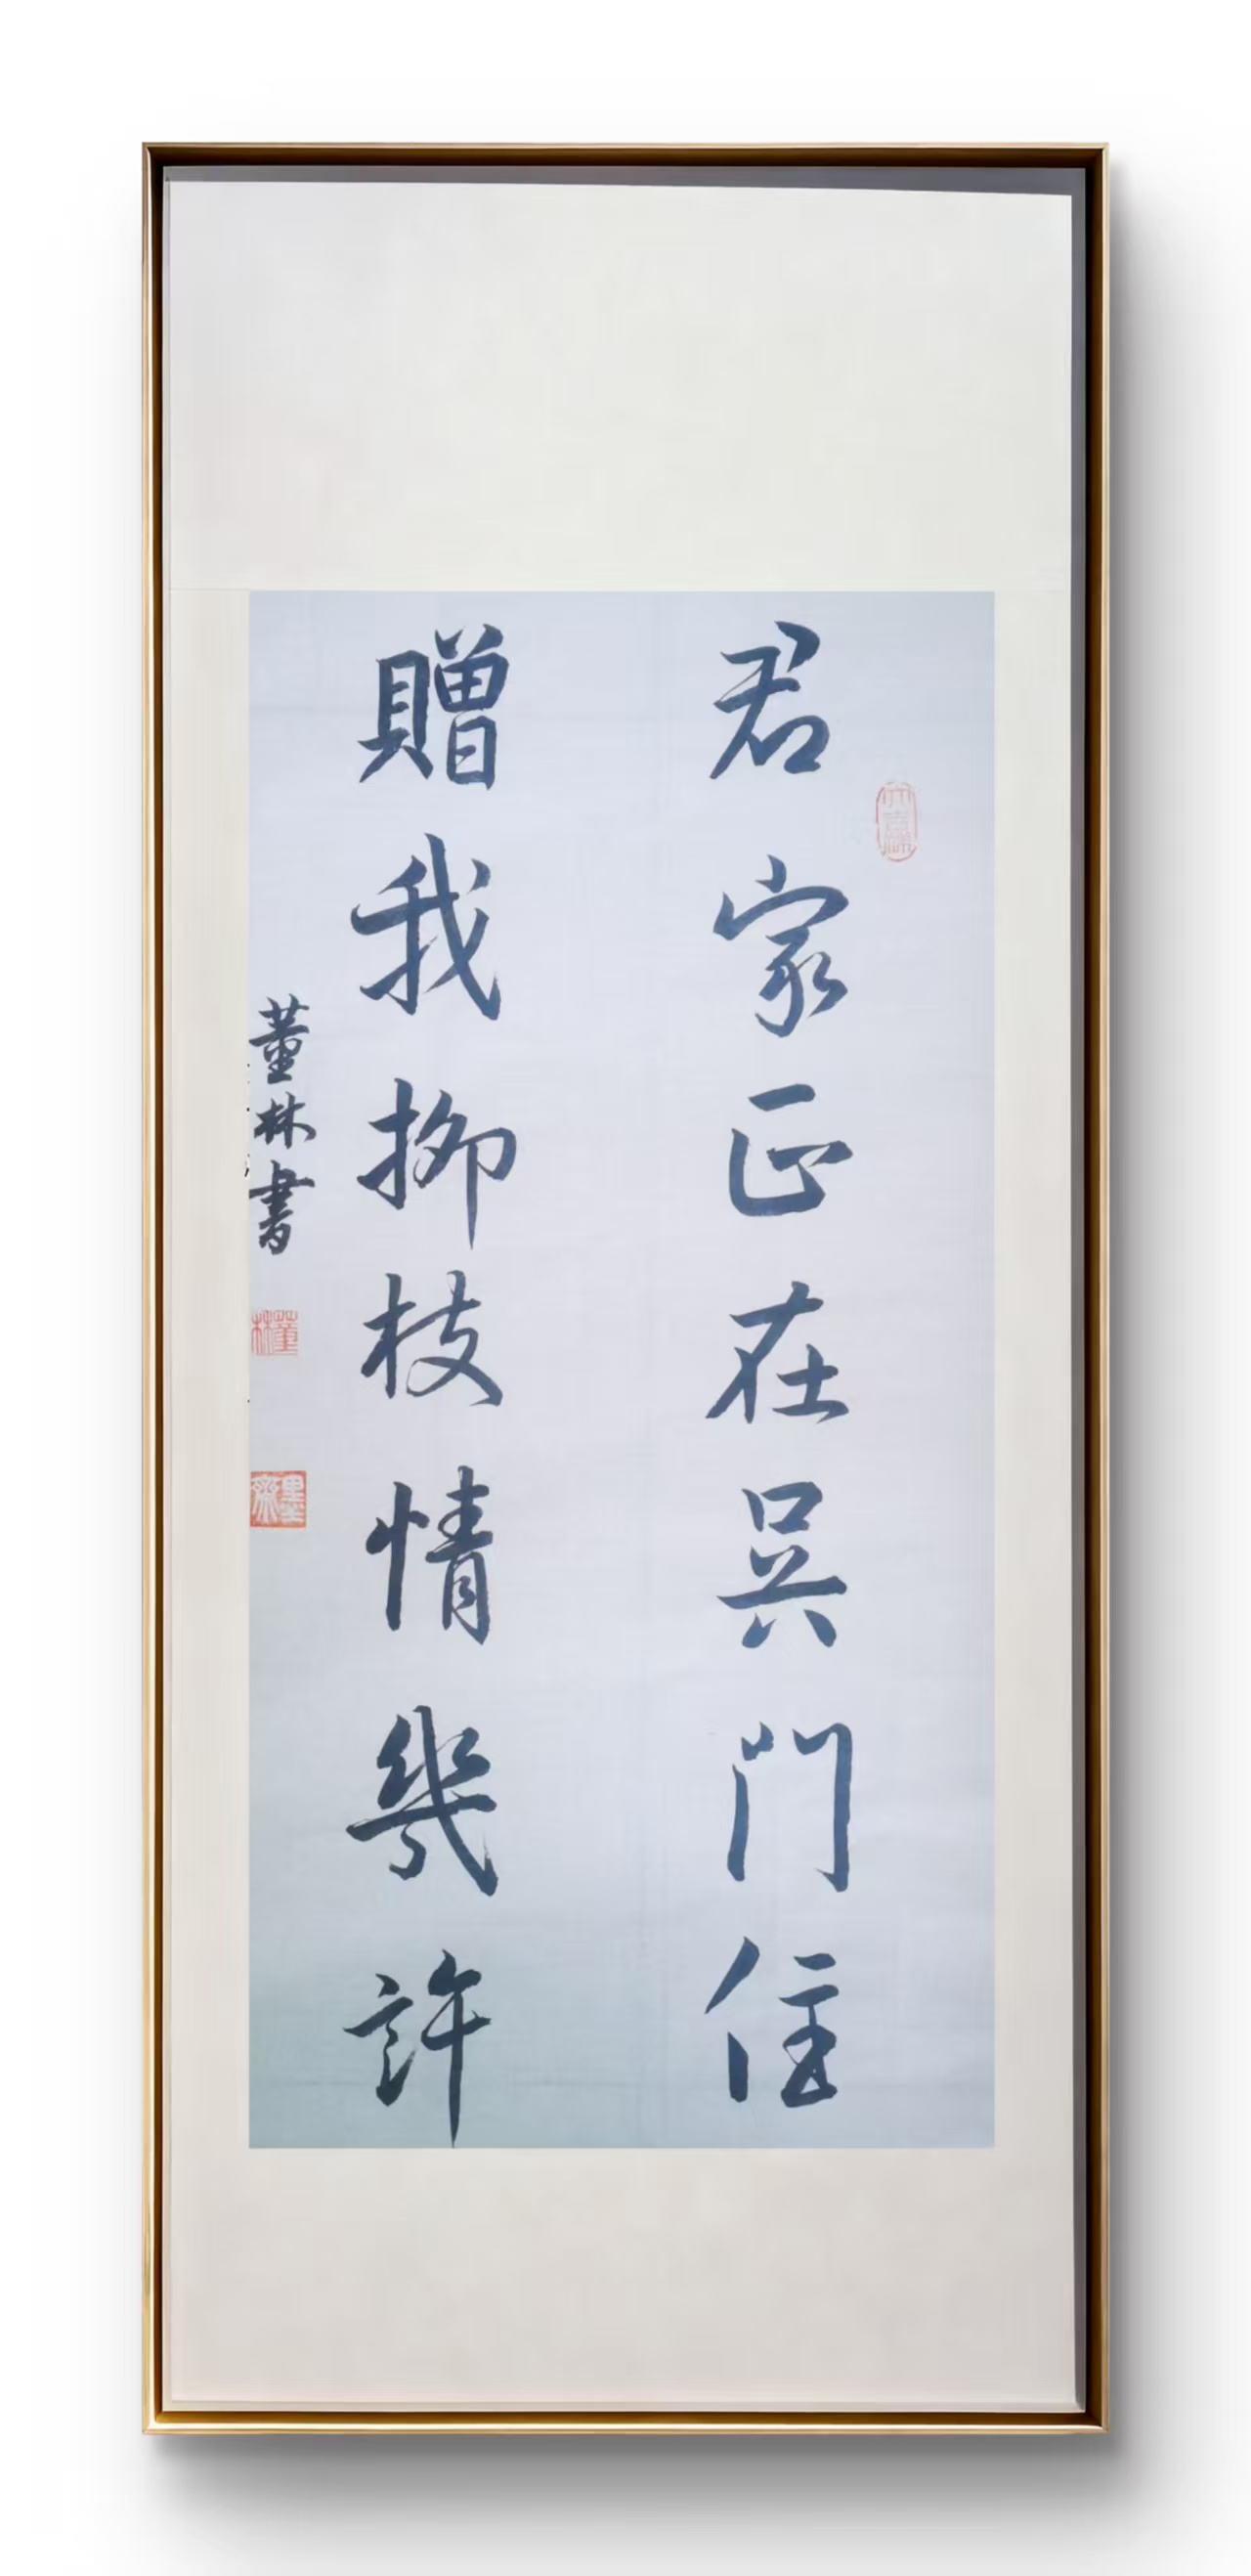 君家正在吳門住
贈我柳枝情幾許
董林書
董林
墨齋